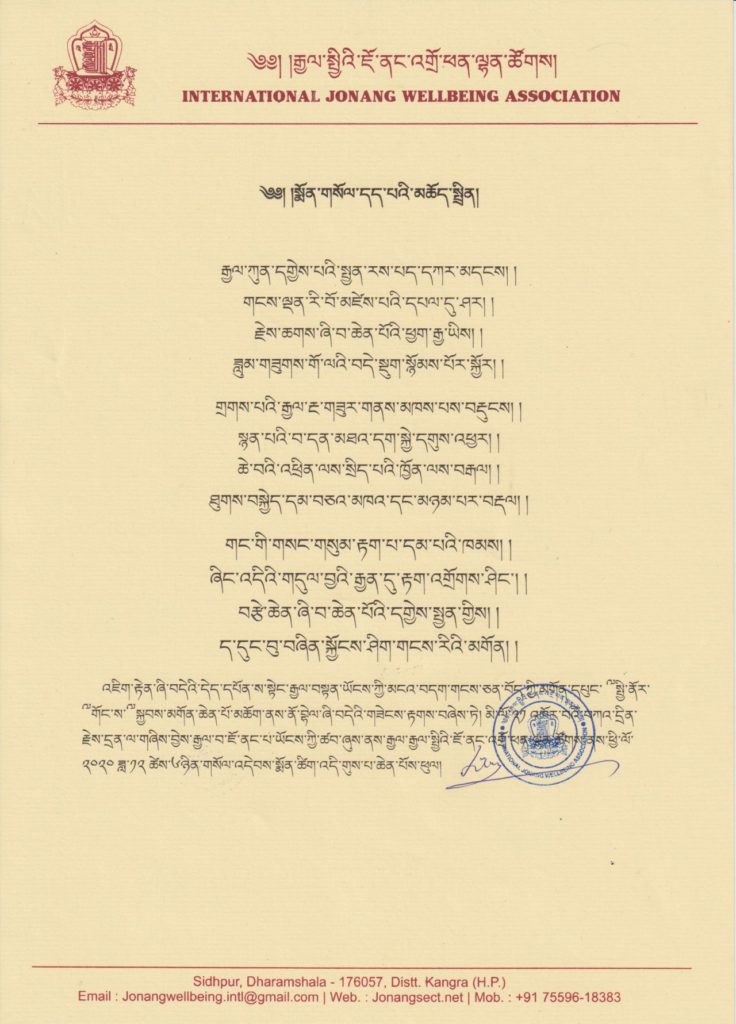 ༄༅། །རྒྱལ་སྤྱིའི་ཇོ་ནང་འགྲོ་ཕན་ལྷན་ཚོགས།
INTERNATIONAL JONANG WELLBEING ASSOCIATION
༄༅། །སྨོན་གསོལ་དད་པའི་མཆོད་སྤྲིན།
རྒྱལ་ཀུན་དགྱེས་པའི་སྤྱན་རས་པད་དཀར་མདངས། །
གངས་ལྡན་རི་བོ་མཛེས་པའི་དཔལ་དུ་ཤར། །
རྗེས་ཆགས་ཞི་བ་ཆེན་པོའི་ཕྱག་རྒྱ་ཡིས། །
ཟླུམ་གཟུགས་གོ་ལའི་བདེ་སྡུག་སྙོམས་པོར་སྐྱོར། །
གྲགས་པའི་རྒྱལ་རྔ་གཟུར་གནས་མཁས་པས་བརྡུངས། །
སྙན་པའི་བ་དན་མཐའ་དག་སྐྱེ་དགུས་འཕྱར། །
ཆེ་བའི་འཕྲིན་ལས་སྲིད་པའི་ཁྱོན་ལས་བརྒལ། །
ཐུགས་བསྐྱེད་དམ་བཅའ་མཁའ་དང་མཉམ་པར་བརྡལ། །
གང་གི་གསང་གསུམ་རྟག་པ་དམ་པའི་ཁམས། །
ཞིང་འདིའི་གདུལ་བྱའི་རྒྱན་དུ་རྟག་འགྲོགས་ཤིང་། །
བརྩེ་ཆེན་ཞི་བ་ཆེན་པོའི་དགྱེས་སྤྱན་གྱིས། །
ད་དུང་བུ་བཞིན་སྐྱོངས་ཤིག་གངས་རིའི་མགོན། །
འཇིག་རྟེན་ཞི་བདེའི་དེད་དཔོན་ས་སྟེང་རྒྱལ་བསྟན་ཡོངས་ཀྱི་མངའ་བདག་གངས་ཅན་བོད་ཀྱི་མགོན་དཔུང་ ༸སྤྱི་ནོར་
༸གོང་ས་༸སྐྱབས་མགོན་ཆེན་པོ་མཆོག་ནས་ནོ་བྷེལ་ཞི་བདེའི་གཟེངས་རྟགས་བཞེས་ཏེ། མི་ལོ་༣༡ འཁོར་བའི་བཀའ་དྲིན་
རྗེས་དྲན་ལ་གཞིས་བྱེས་རྒྱལ་བ་ཇོ་ནང་པ་ཡོངས་ཀྱི་ཚབ་ཞུས་ནས་རྒྱལ་སྤྱིའི་ཇོ་ནང་འགྲོ་ཕན་ལྷན་ཚོགས་ནས་ཕྱི་ལོ་
༢༠༢༠ ཟླ་༡༢ ཚེས་ ཉིན་གསོལ་འདེབས་སྨོན་ཚིག་འདི་གུས་པ་ཆེན་པོས་ཕུལ།
INTERNATIONAL JONANG WELLBEING ASSOCIATION
Sidhpur, Dharamshala - 176057, Distt. Kangra (H.P.)
Email : Jonangwellbeing.intl@gmail.com | Web. : Jonangsect.net | Mob. : +91 75596-18383